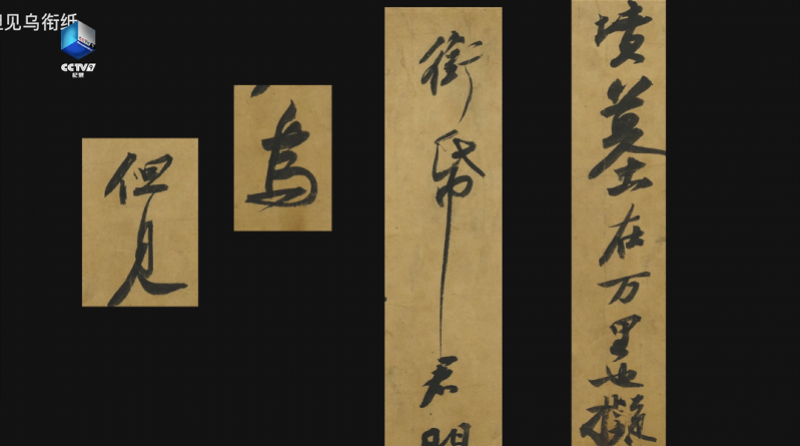 但见乌衔纸
CCTV9
纪录
但見
烏
銜帋君
墳墓在万里也擬